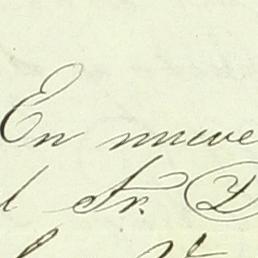 En nueve
l Sr. D